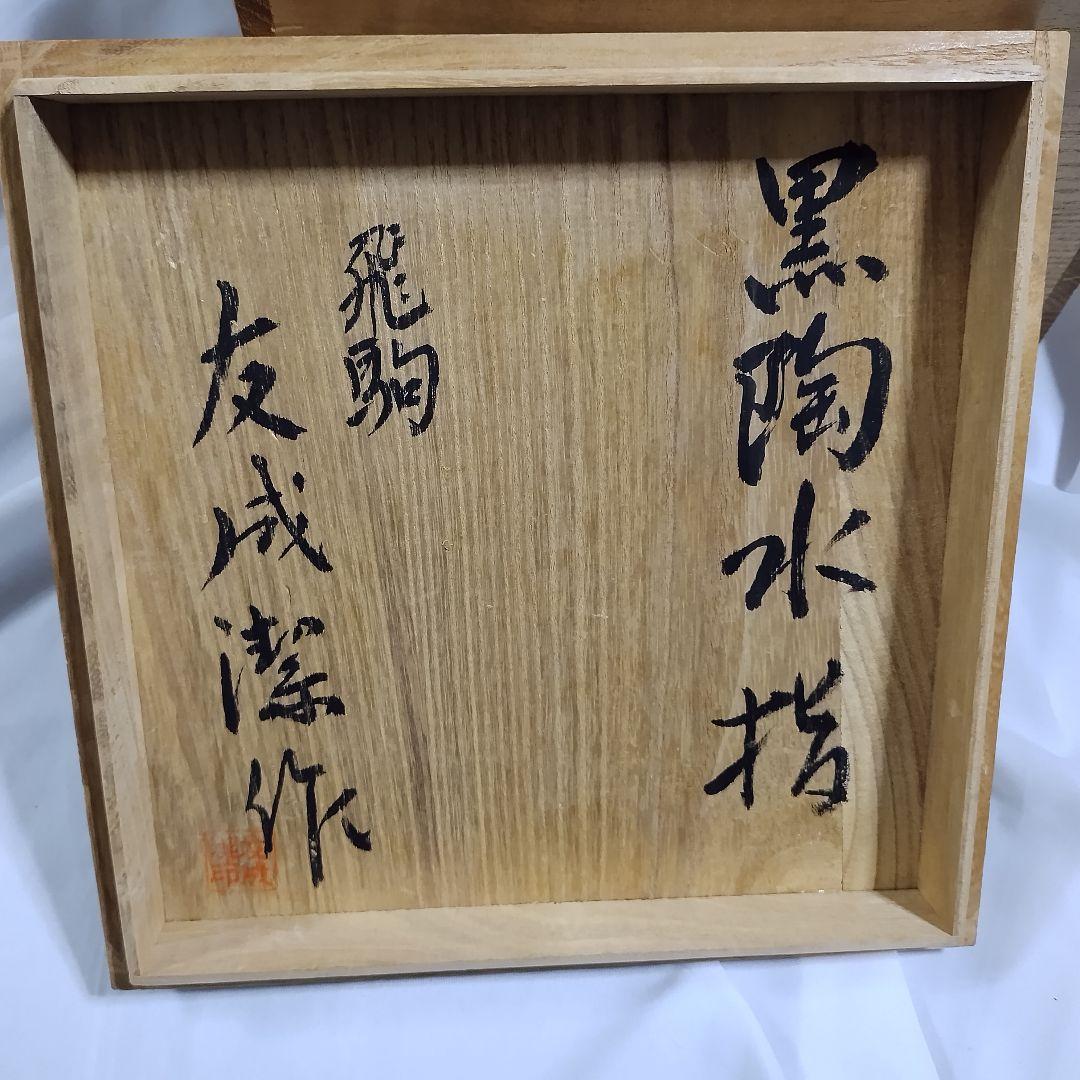 黒陶水指
飛駒
友成潔作